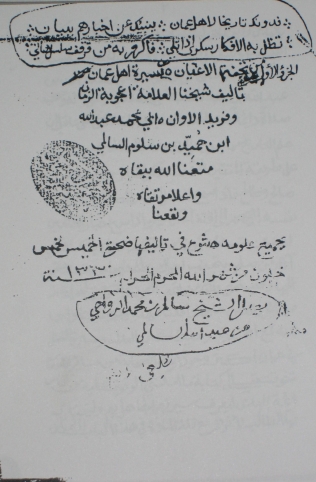 فدونك تاريخا لاهل عمان ينبئك عن اخبارهم ببيان
تظل به الافكار سكرى اذا تلي
الجزء الاول من تحفة الاعيان بسيرة اهل عمان
تأليف شيخنا العلامة اعجوبة الزمان
وفريد الاوان ابي محمد عبدالله
ابن حميد بن سلوم السالمي
متعنا الله ببقاه
واعلا مرتقاه
ونفعنا
بجميع علومه في تأليفها ضحى الخميس لخمس
خلون من شهر الله المحرم الحرام سنة
الشيخ سالم بن محمد الرواحي
من عبدالله السالمي